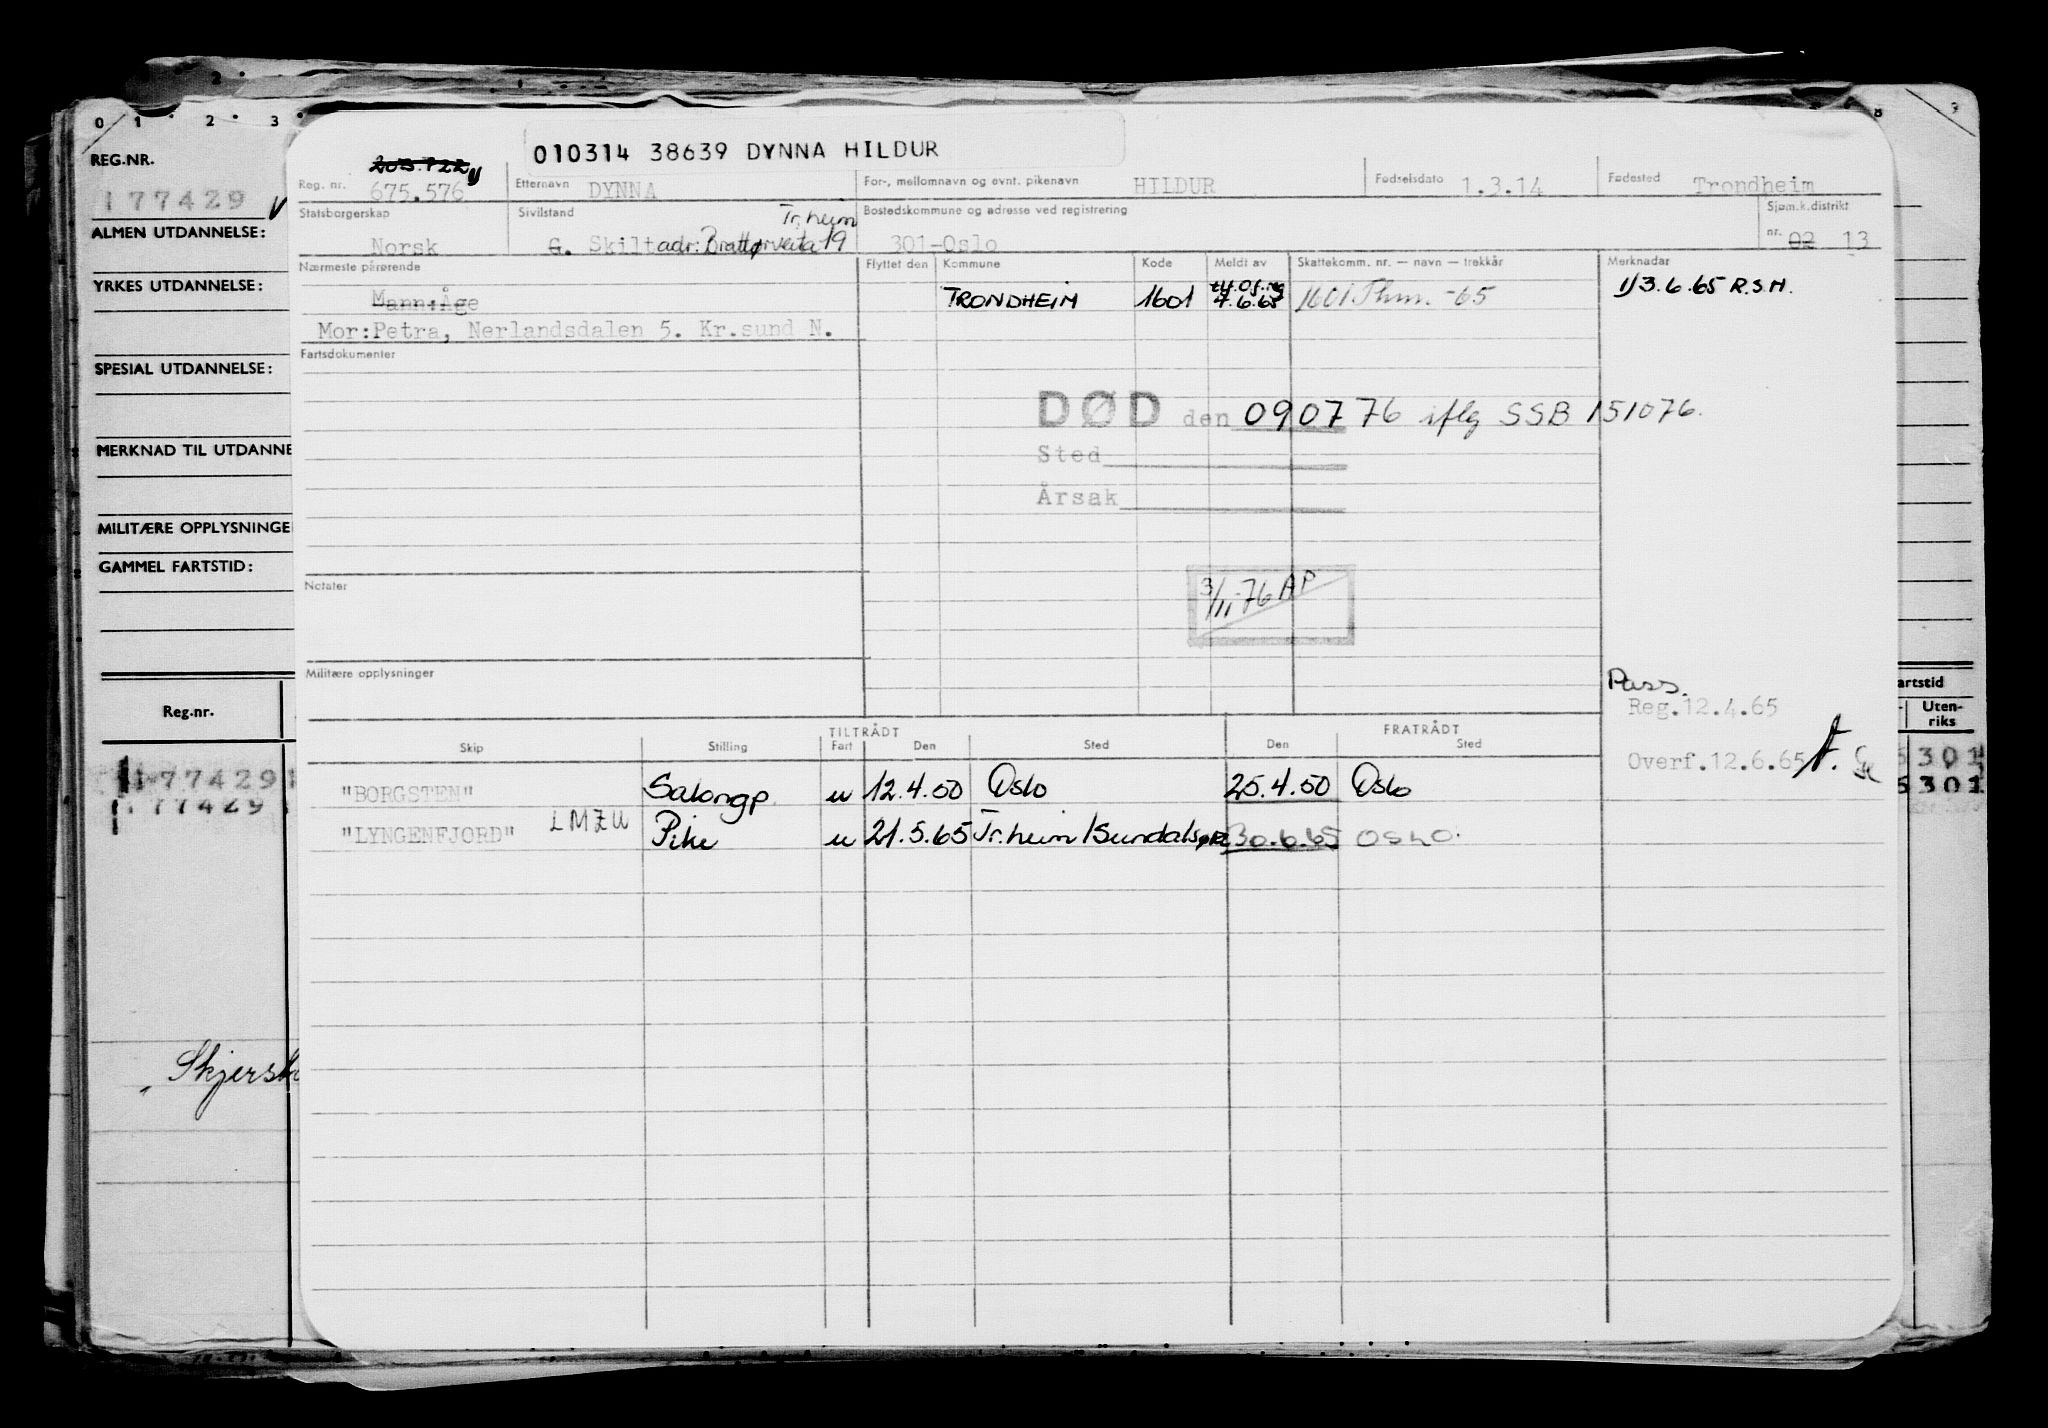 0 1 2 3 8 9
REG.NR.
177429
ALMEN UTDANNELSE:
YRKES UTDANNELSE:
SPESIAL UTDANNELSE:
MERKNAD TIL UTDANNE
MILITÆRE OPPLYSNINGE
GAMMEL FARTSTID:
Reg.nr.
177429
177429
Skjersta
010314 38639 DYNNA HILDUR
Reg. nr. 675.576 Etternavn DYNNA For-, mellomnavn og evnt. pikenavn HILDUR Fødselsdato 1.3.14 Fødested Trondheim
Statsborgerskap Sivilstand Tr.heim Bostedskommune og adresse ved registrering Sjøm.k.distrikt
Norsk G. Skilt adr: Brattørveita 19 301-Oslo nr. 02 13
Nærmeste pårørende Flyttet den Kommune Kode Meldt av Skattekomm. nr. — navn — trekkår Merknader
Mann:Åge TRONDHEIM 1601 4.6.65 1601 Thm. -65 1/3.6.65 R.S.H.
Mor:Petra, Nerlandsdalen 5. Kr.sund N.
Fartsdokumenter
DØD den 090776 iflg SSB 151076.
Sted
Årsak
3/11-76 AP
Notater
Militære opplysninger
Pass.
Reg.12.4.65
Overf.12.6.65
TILTRÅDT FRATRÅDT
Skip Stilling Fart Den Sted Den Sted
"BORGSTEN" Salongp. u 12.4.50 Oslo 25.4.50 Oslo
"LYNGENFJORD" LMZU Pike u 21.5.65 Tr.heim/Sundalsøra 30.6.65 OSLO.
artstid
Uten-
riks
301
301